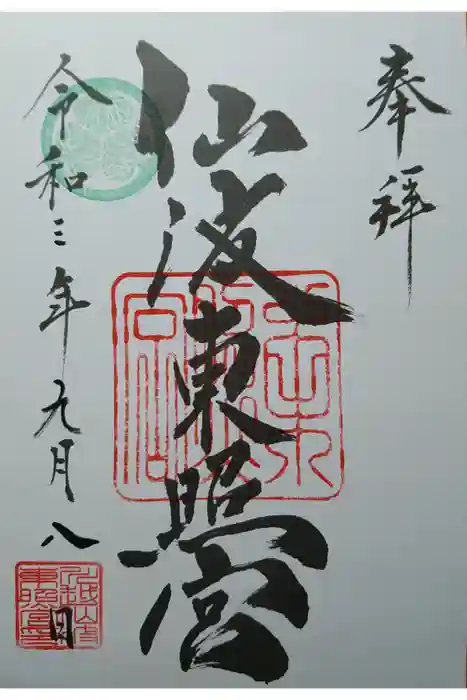 奉拝
仙波東照宮
令和三年九月八日